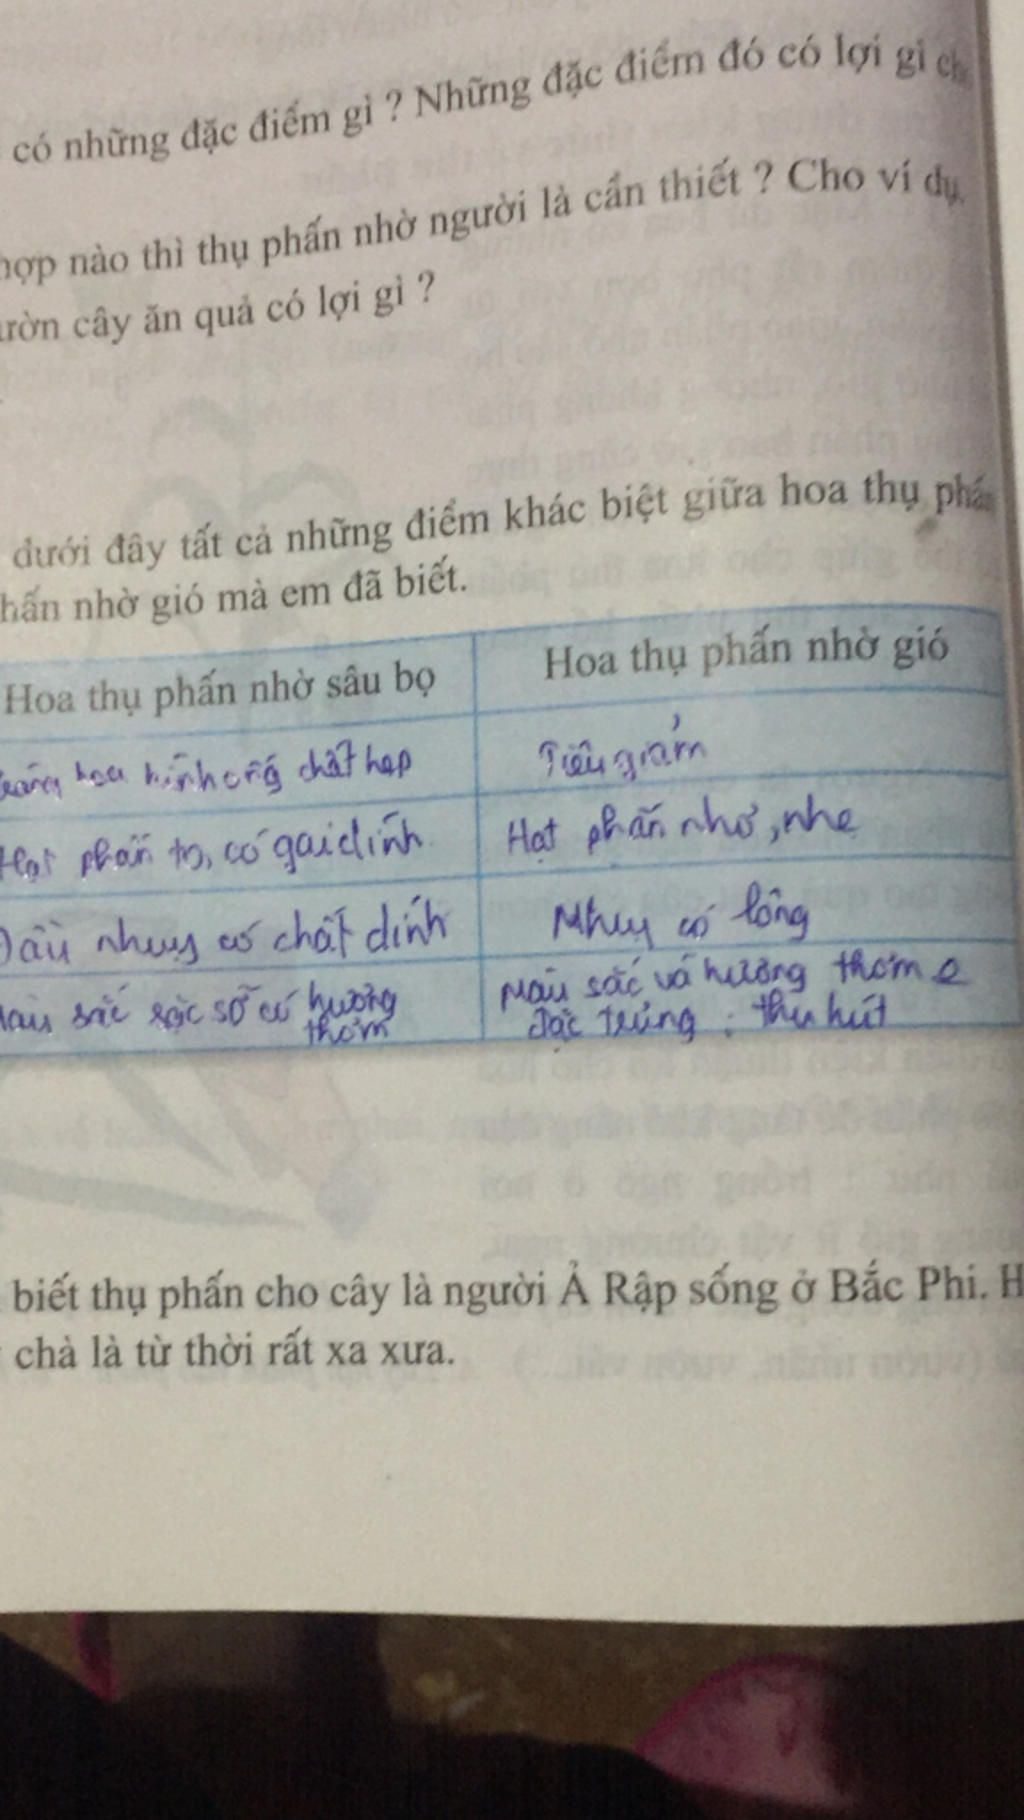 có những đặc điểm gì ? Những đặc điểm đó có lợi gì
nào thì thụ phấn nhờ người là cần thiết ? Cho ví dụ.
cây ăn quả có lợi gì ?
dưới đây tất cả những điểm khác biệt giữa hoa thụ
nhờ gió mà em đã biết.
Hoa thụ phấn nhờ sâu bọ
Hoa thụ phấn nhờ gió
hoa hình ống chật hẹp
Tiêu giảm
Hạt phấn to, có gai dính
Hạt phấn nhỏ, nhẹ
Đầu nhụy có chất dính
Nhụy có lông
sắc sặc sỡ có hương
thơm
Màu sắc và hương thơm
đặc trưng : thu hút
biết thụ phấn cho cây là người Ả Rập sống ở Bắc Phi.
chà là từ thời rất xa xưa.